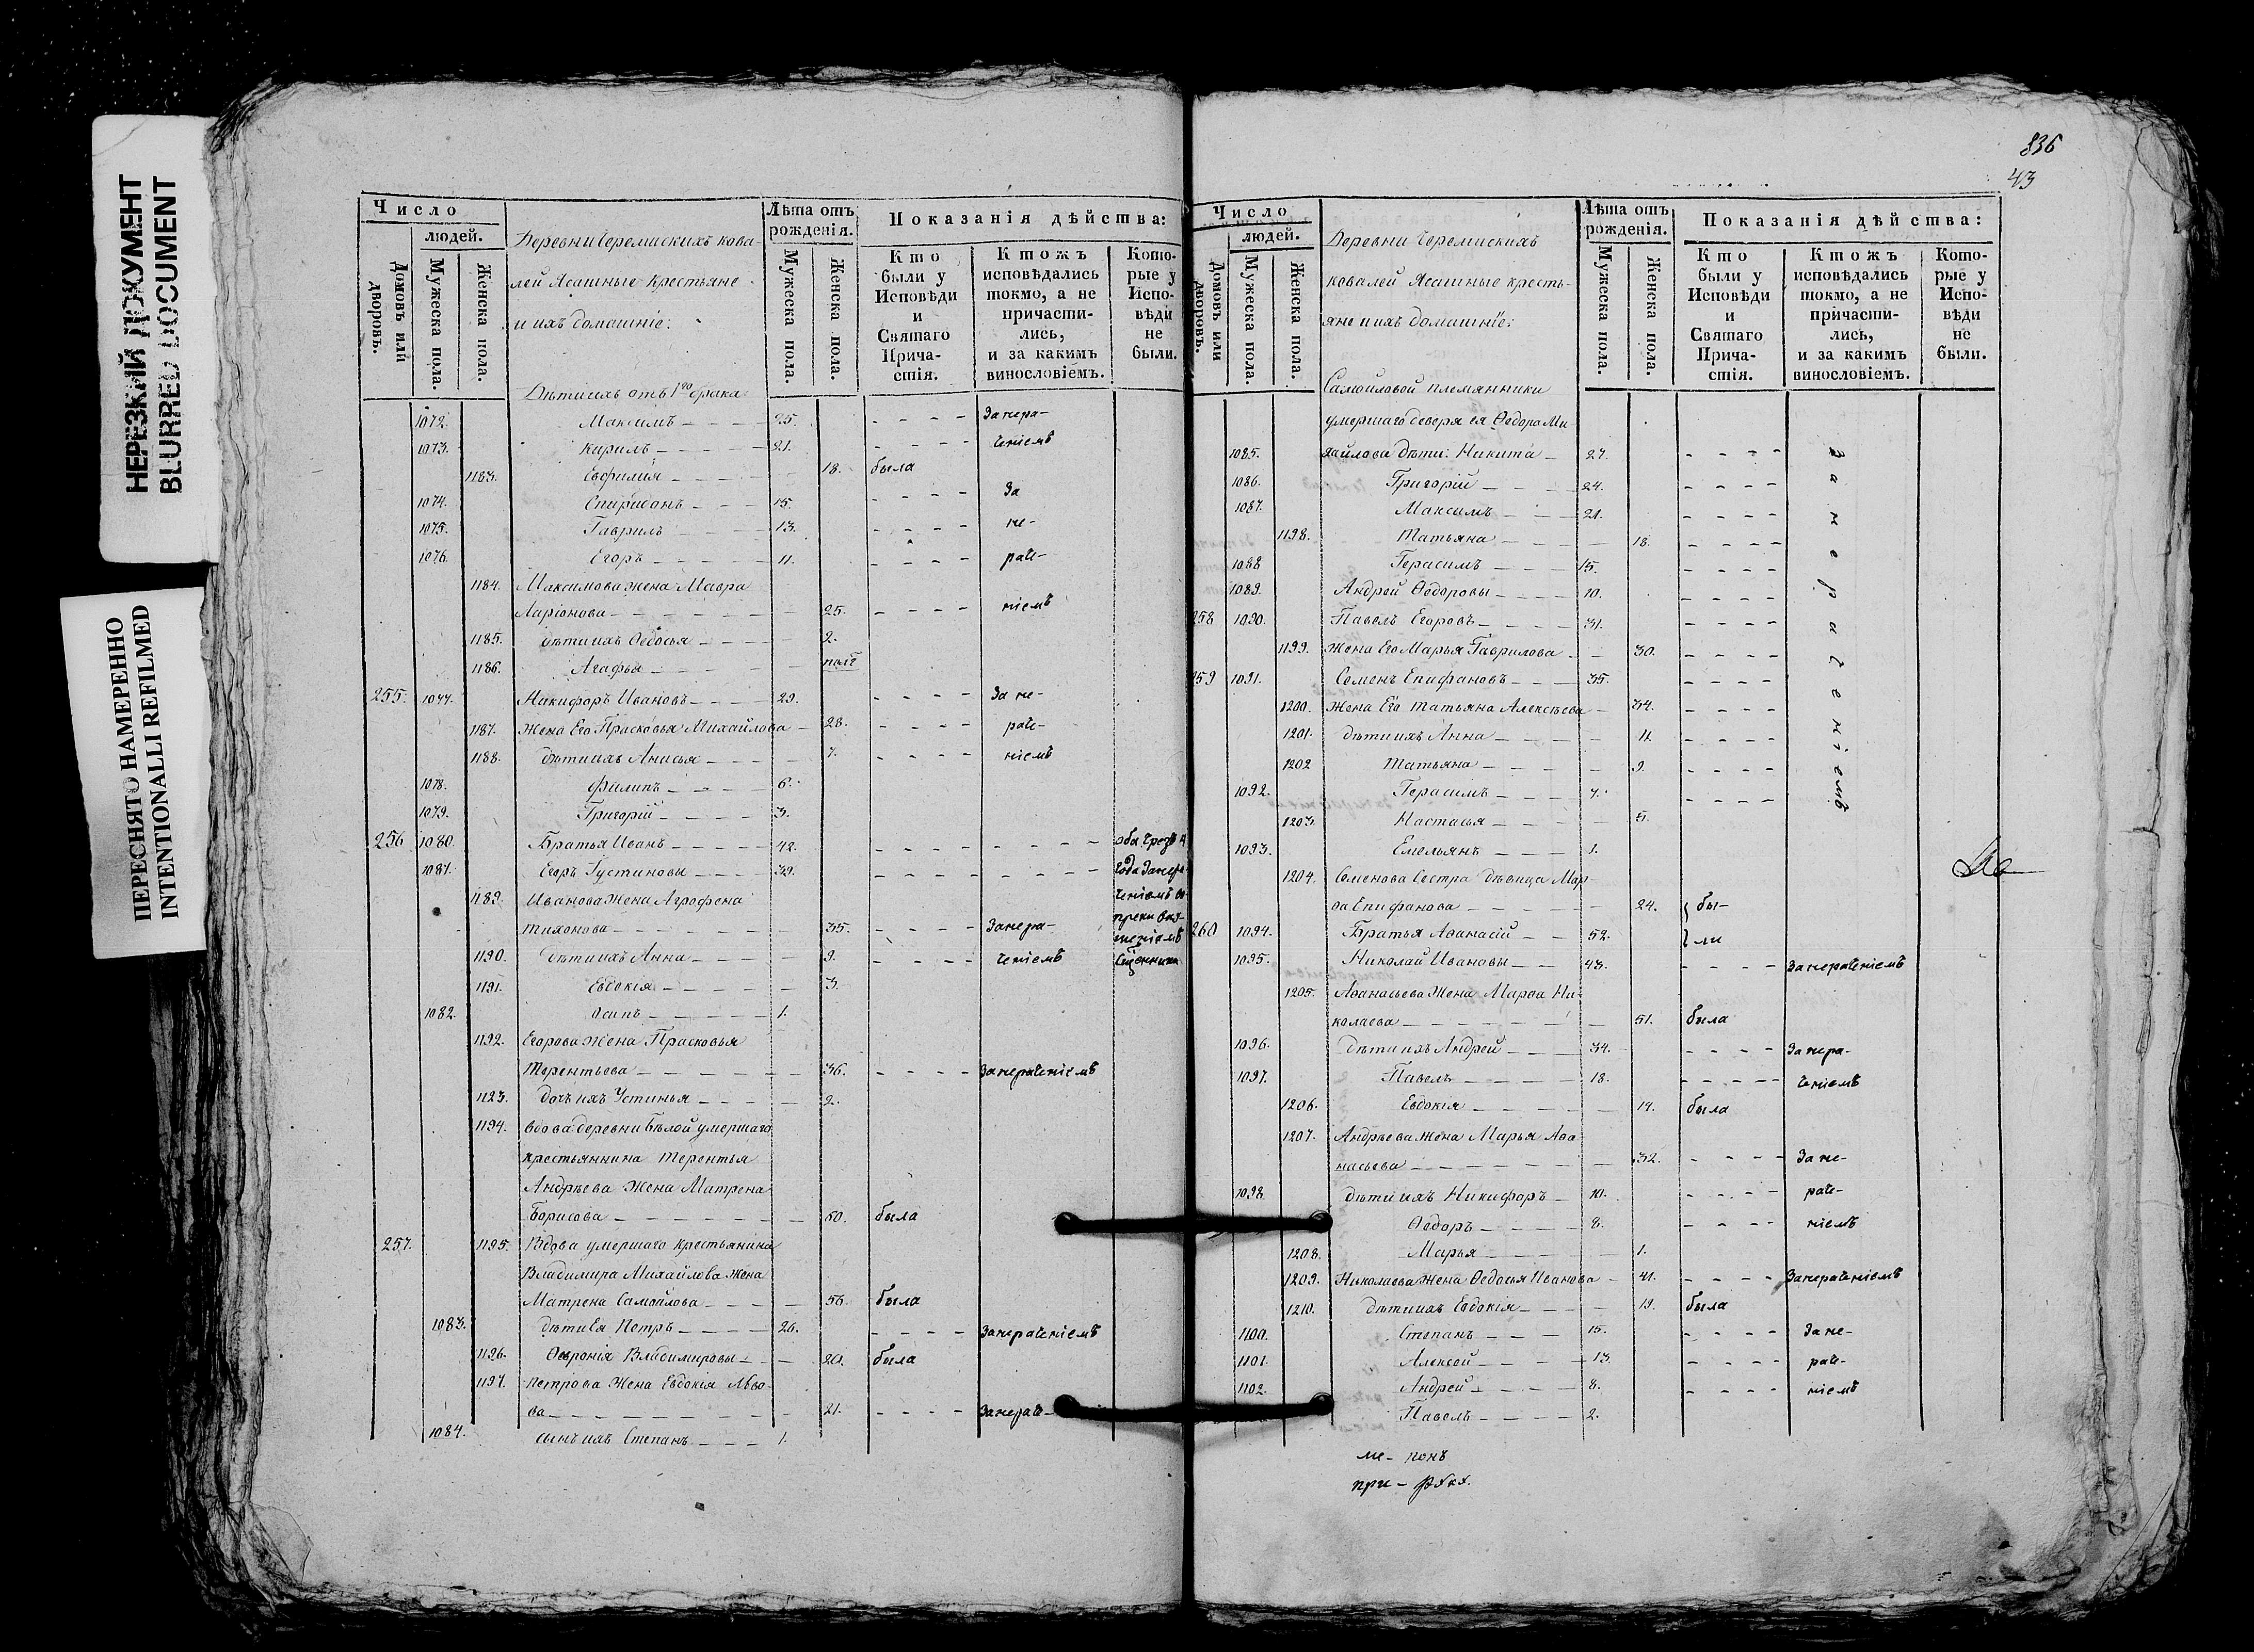 НЕРЕЗКИЙ ДОКУМЕНТ
BLURRED DOCUMENT
ПЕРЕСНЯТО НАМЕРЕННО
INTENTIONALLI REFILMED
Число
людей.
Домовъ или дворовъ.
Мужеска пола.
Женска пола.
Деревни Черемискихъ кова-
лей Ясашные крестьяне
и ихъ домашніе:
Лѣта отъ рожденія.
Мужеска пола.
Женска пола.
Показанія дѣйства:
Кто были у Исповѣди и Святаго Прича-стія.
Ктожъ исповѣдались токмо, а не причасти-лись, и за какимъ винословіемъ.
Кото-рые у Испо-вѣди не были.
Дѣти ихъ отъ 1го брака
1072. Максимъ 25. Занера-
1073. Кирилъ 21. ченіемъ
1183. Евфимія 18. была
1074. Спиридонъ 15. За
1075. Гаврилъ 13. не-
1076. Егоръ 11. раче-
1184. Максимова жена Мавра
Ларіонова 25. ніемъ
1185. дѣти ихъ Ѳедосья 2.
1186. Агафья
255. 1077. Никифоръ Ивановъ 29. За не-
1187. Жена Его Прасковья Михайлова 28. раче-
1188. дѣти ихъ Анисья 7. ніемъ
1078. Филипъ 6.
1079. Григорій 3.
256 1080. Братья Иванъ 42. Оба чрезъ 4
1081. Егоръ Густиновы 39. года Занера-
1189. Иванова жена Агрофена ченіемъ во-
Тихонова 35. Занера- преки
1190. дѣти ихъ Анна 9. ченіемъ Сщенника
1191. Евдокія 3.
1082. Осипъ 1.
1192. Егорова жена Прасковья
Терентьева 36. Занераченіемъ
1123. дочь ихъ Устинья 2.
1194. Вдова деревни Бѣлой умершаго
крестьяннина Терентья
Андрѣева Жена Матрена
Борисова 60. была
257. 1195. Вдова умершаго крестьянина
Владимира Михайлова жена
Матрена Самойлова 56. была
1083. дѣти Ея Петръ 26. Занераченіемъ
1196. Ѳевронія Владимировы 20. была
1197. Петрова Жена Евдокія Льво-
ва 21. Занерач
1084. сынъ ихъ Степанъ 1.
836
43
Число
людей.
Домовъ или дворовъ.
Мужеска пола.
Женска пола.
Деревни Черемискихъ
ковалей Ясашные кресть-
яне и ихъ домашніе:
Лѣта отъ рожденія.
Мужеска пола.
Женска пола.
Показанія дѣйства:
Кто были у Исповѣди и Святаго Прича-стія.
Ктожъ исповѣдались токмо, а не причасти-лись, и за какимъ винословіемъ.
Кото-рые у Испо-вѣди не были.
Самойловой племянники
умершаго деверя ея Ѳедора Ми-
хайлова дѣти: Никита 27.
1085.
1086. Григорій 24.
1087. Максимъ 21.
1198. Татьяна 18.
1088 Герасимъ 15.
1089. Андрей Ѳедоровы 10.
258 1090. Павелъ Егоровъ 31.
1199. Жена Его Марья Гаврилова 30.
259 1091. Семенъ Епифановъ 35.
1200. Жена Его Татьяна Алексѣева 34.
1201. дѣти ихъ Анна 11.
1202 Татьяна 9.
1092. Герасимъ 7.
1203. Настасья 5.
1093. Емельянъ 1.
Занераченіемъ
1204. Семенова Сестра дѣвица Мар-
ѳа Епифанова 24. бы-
260 1094. Братья Аѳанасій 52. ли
1095. Николай Ивановы 43. Занераченіемъ
1205. Аѳанасьева Жена Марѳа Ни-
колаева 51. была
1096. дѣти ихъ Андрей 34. Занера-
1097. Павелъ 18. ченіемъ
1206. Евдокія 14. была
1207. Андрѣева жена Марья Аѳа-
насьева 32. Зане-
1098 дѣти ихъ Никифоръ 10. раче-
Ѳедоръ 8. ніемъ
1208. Марья 1.
1209. Николаева Жена Ѳедосья Иванова 41. Занераченіемъ
1210. дѣти ихъ Евдокія 19. была
1100. Степанъ 15. Зане-
1101. Алексей 13. раче-
1102. Андрей 8. ніемъ
Павелъ 2.